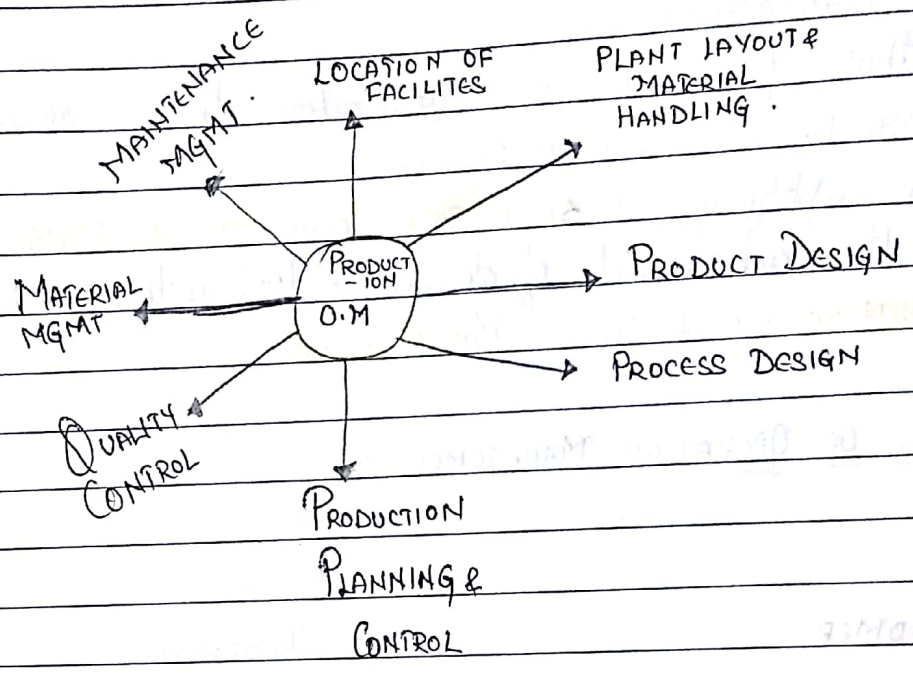 MAINTENANCE
MGMT.
LOCATION OF
FACILITES
PLANT LAYOUT &
MATERIAL
HANDLING.
PRODUCT
-ION
O.M
PRODUCT DESIGN
MATERIAL
MGMT
PROCESS DESIGN
QUALITY
CONTROL
PRODUCTION
PLANNING &
CONTROL